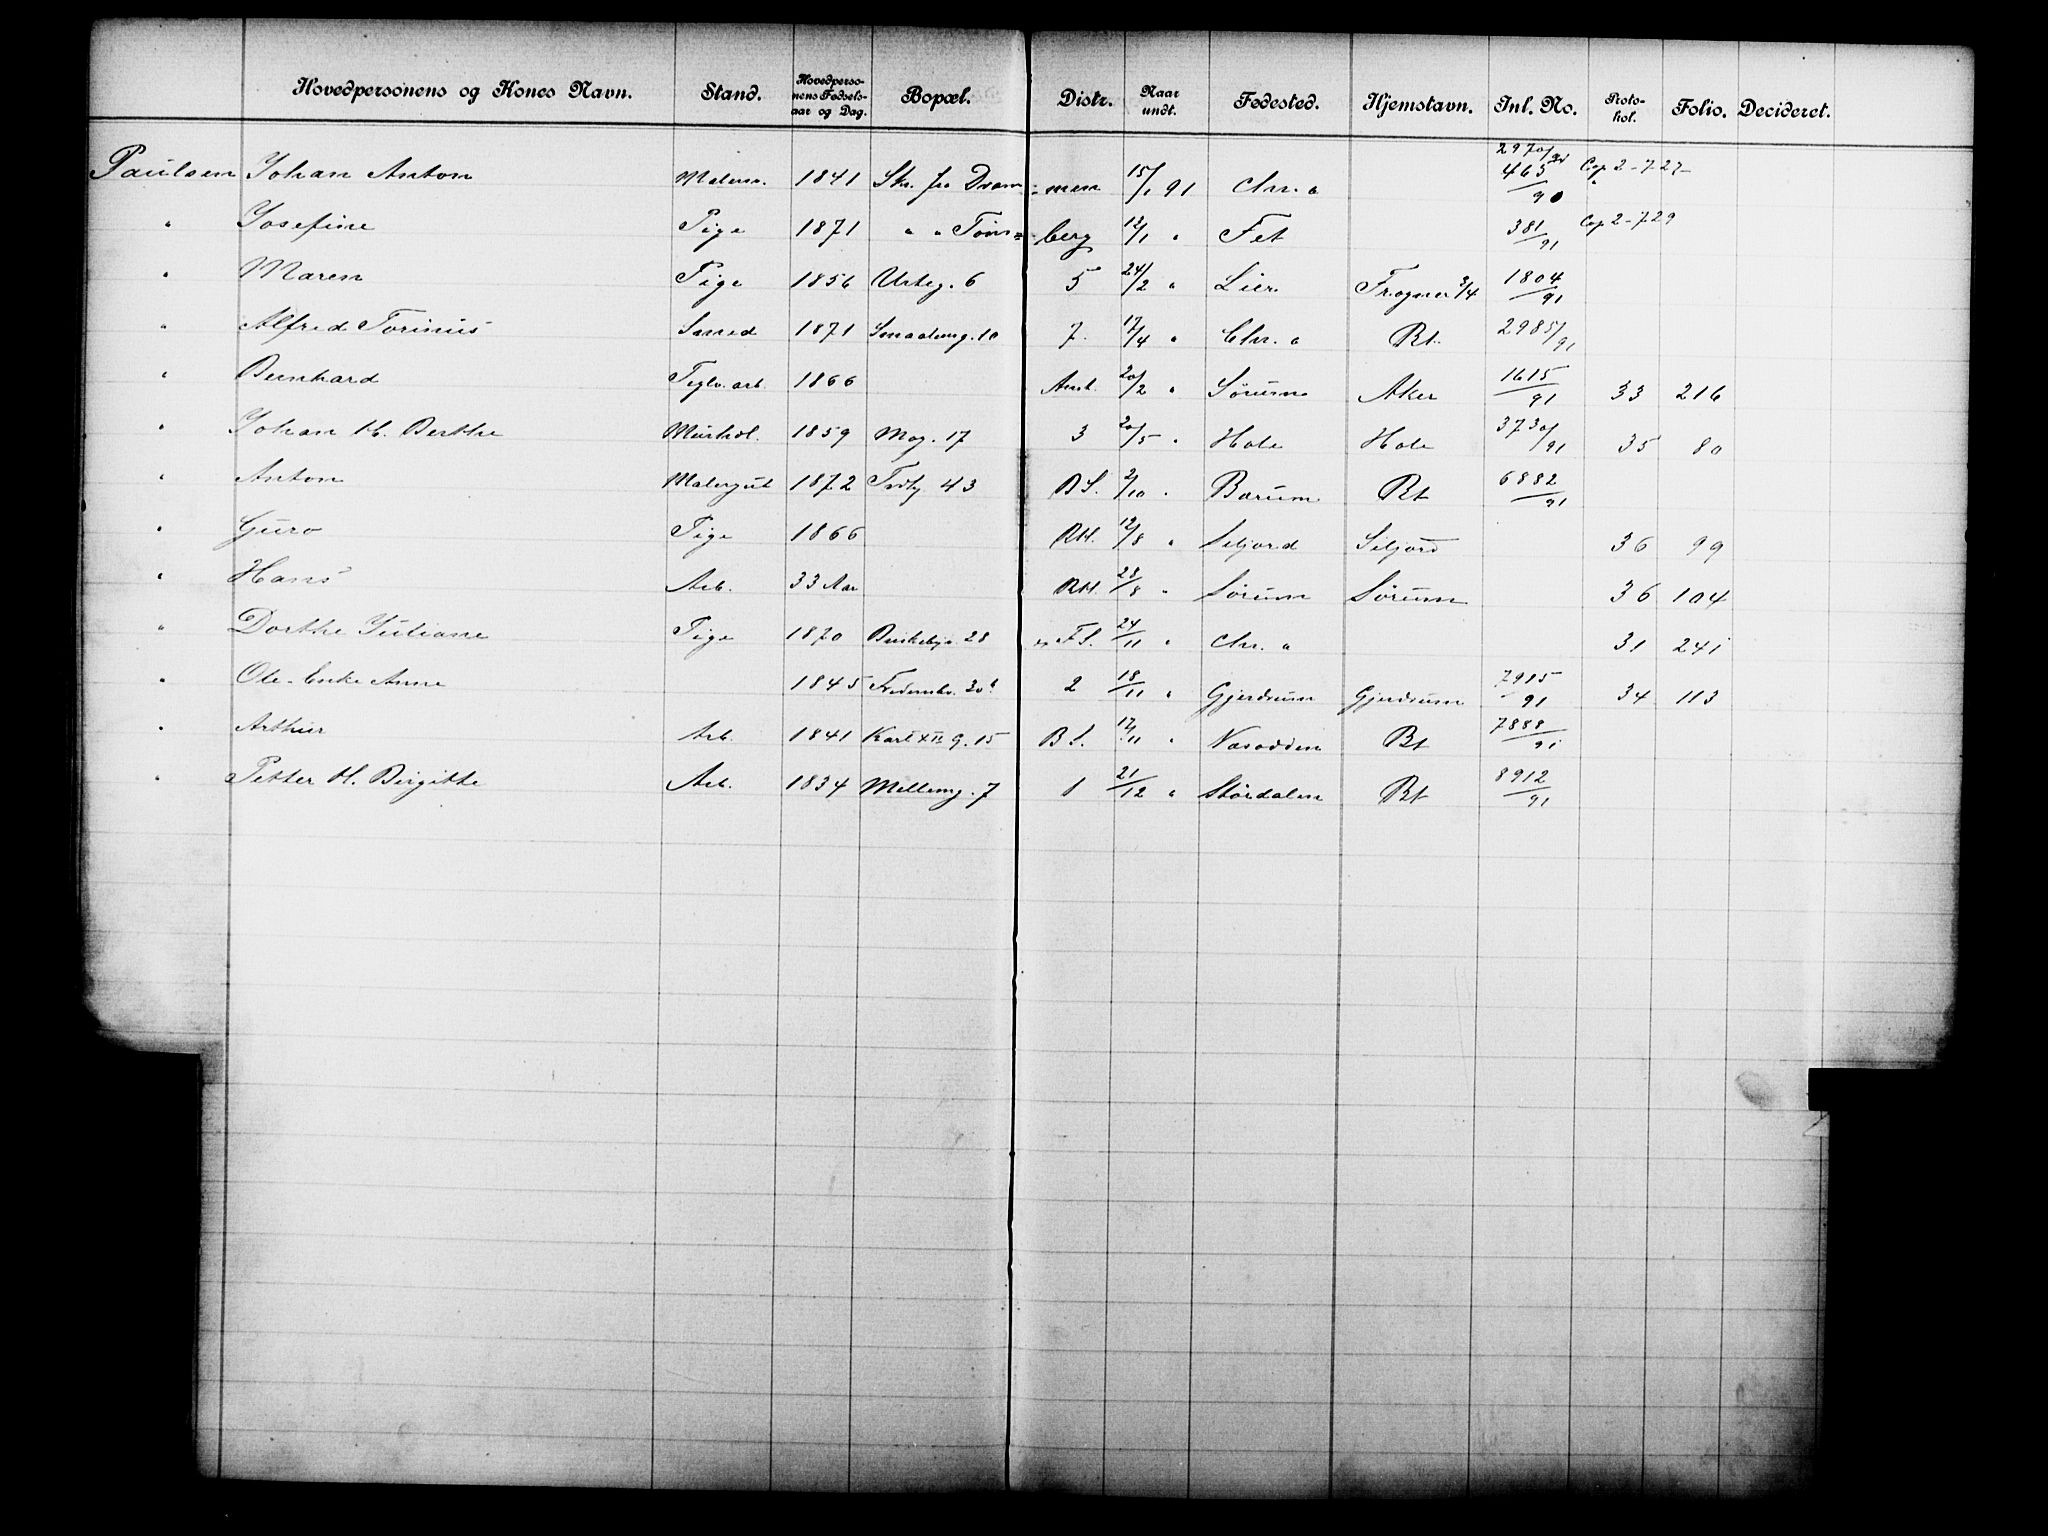 Hovedpersonens og Kones Navn. Stand. Hovedpersonens Fødselsaar og Dag. Bopæl. Distr. Naar undt. Fødested. Hjemstavn. Inl. No. Protokol. Folio. Decideret.
Paulsen Johan Anton 1841 Skr. fra Drammen 15/1 91 Chr.a 2970/ 465/90 Cop 2-7.27
" Josefine Pige 1871 " " Tønsberg 12/1 " Fet 381/91 Cop 2-7.29
" Maren Pige 1856 Urteg. 6 5 24/2 " Lier Frogner 3/4 1804/91
" Alfred Torinius Smed 1871 Smaalensg. 10 7. 17/4 " Chr.a Bt. 2985/91
" Bernhard Teglv. arb. 1866 Amt. 20/2 " Sørum Aker 1615/91 33 216
" Johan H. Berthe Murhdl. 1859 Mog. 17 3 20/5 " Hole Hole 3730/91 35 80
" Anton Malergut 1872 Tvtg 43 B S. 2/10 " Bærum Bt 6882/91
" Guro Pige 1866 RH. 12/8 " Seljord Seljord 36 99
" Hans Arb. 33 Aar RH. 28/8 " Sørum Sørum 36 104
" Dorthe Juliane Pige 1870 Birkebg. 28 F S. 24/11 " Chr.a 31 241
" Ole. Enke Anne 1845 Fredensb. 30 2 18/11 " Gjerdrum Gjerdrum 7915/91 34 113
" Arthur Arb. 1841 Karl XII g. 15 B S. 17/11 " Næsodden Bt 7888/91
" Petter H. Birgitte Arb. 1834 Mellemg. 7 1 21/12 " Størdalen Bt 8912/91